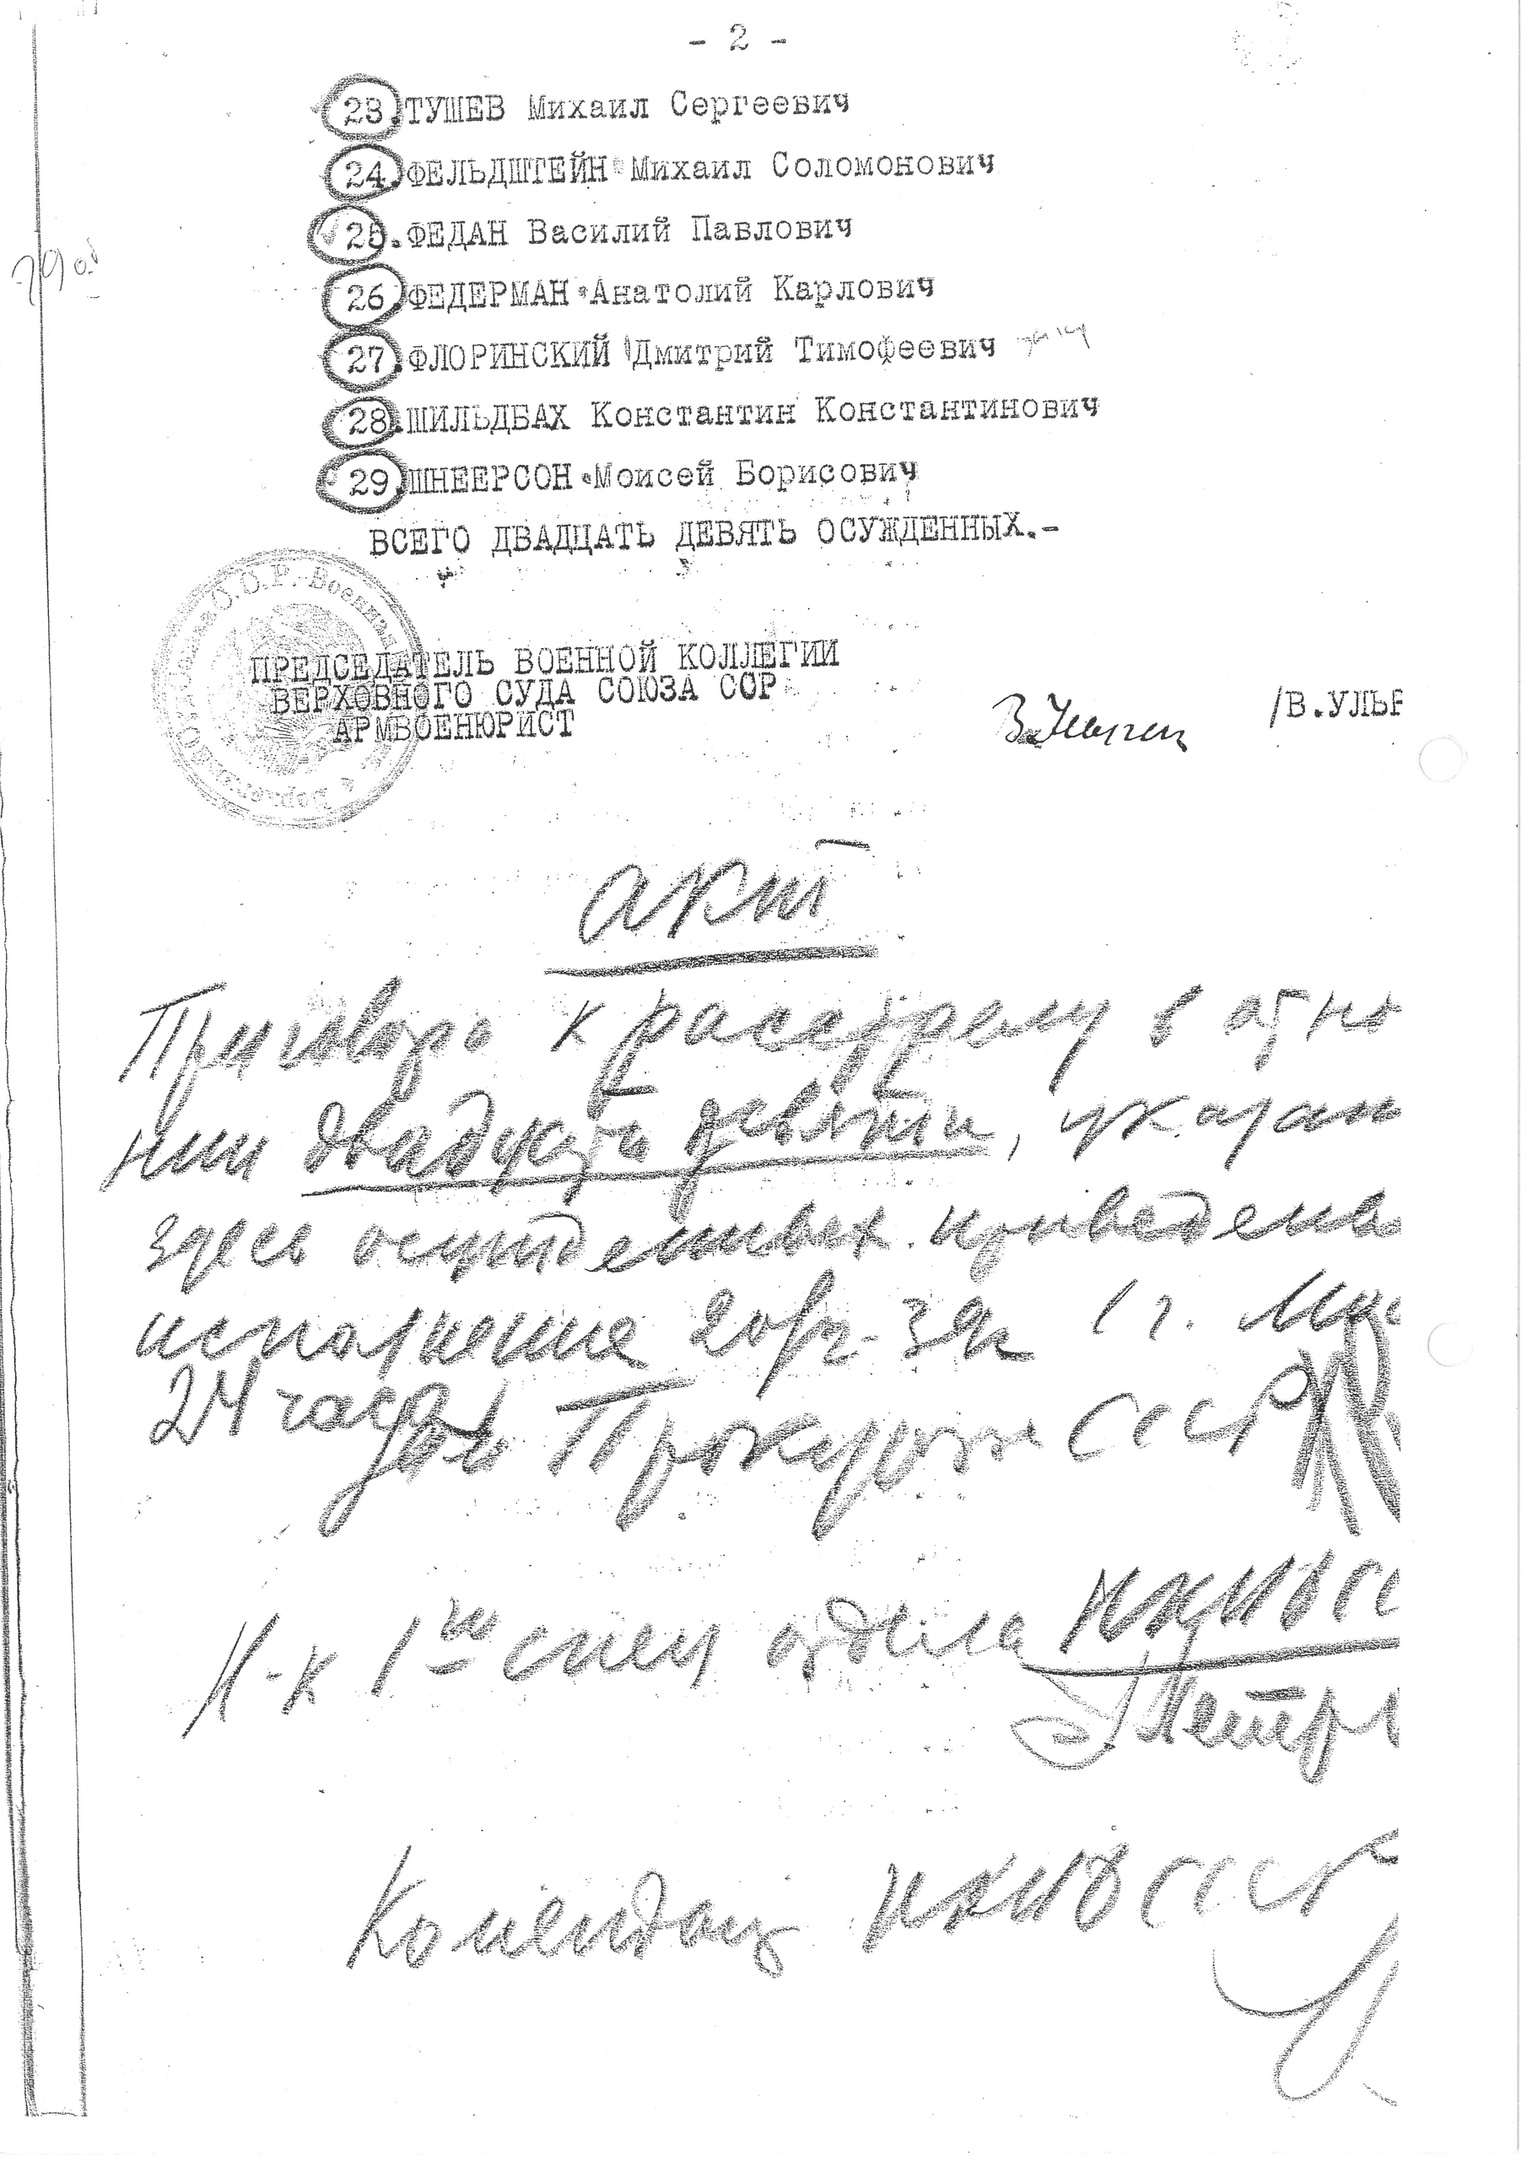 - 2 -
23. ТУШЕВ Михаил Сергеевич
24. ФЕЛЬДШТЕЙН Михаил Соломонович
25. ФЕДАН Василий Павлович
26. ФЕДЕРМАН Анатолий Карлович
27. ФЛОРИНСКИЙ Дмитрий Тимофеевич
28. ШИЛЬДБАХ Константин Константинович
29. ШНЕЕРСОН Моисей Борисович
ВСЕГО ДВАДЦАТЬ ДЕВЯТЬ ОСУЖДЕННЫХ.-
ПРЕДСЕДАТЕЛЬ ВОЕННОЙ КОЛЛЕГИИ
ВЕРХОВНОГО СУДА СОЮЗА ССР
АРМВОЕНЮРИСТ
В.Ульрих /В.УЛЬР
Акт
Приговор к расстрелу в отно
нии двадцати девяти, указан
здесь осужденных приведены
исполнение 20/II-39г. в г. Мос
24 часа
Прокурора СССР
Н-к 1го спец отдела НКВД СС
Петр
Комендант НКВД СССР